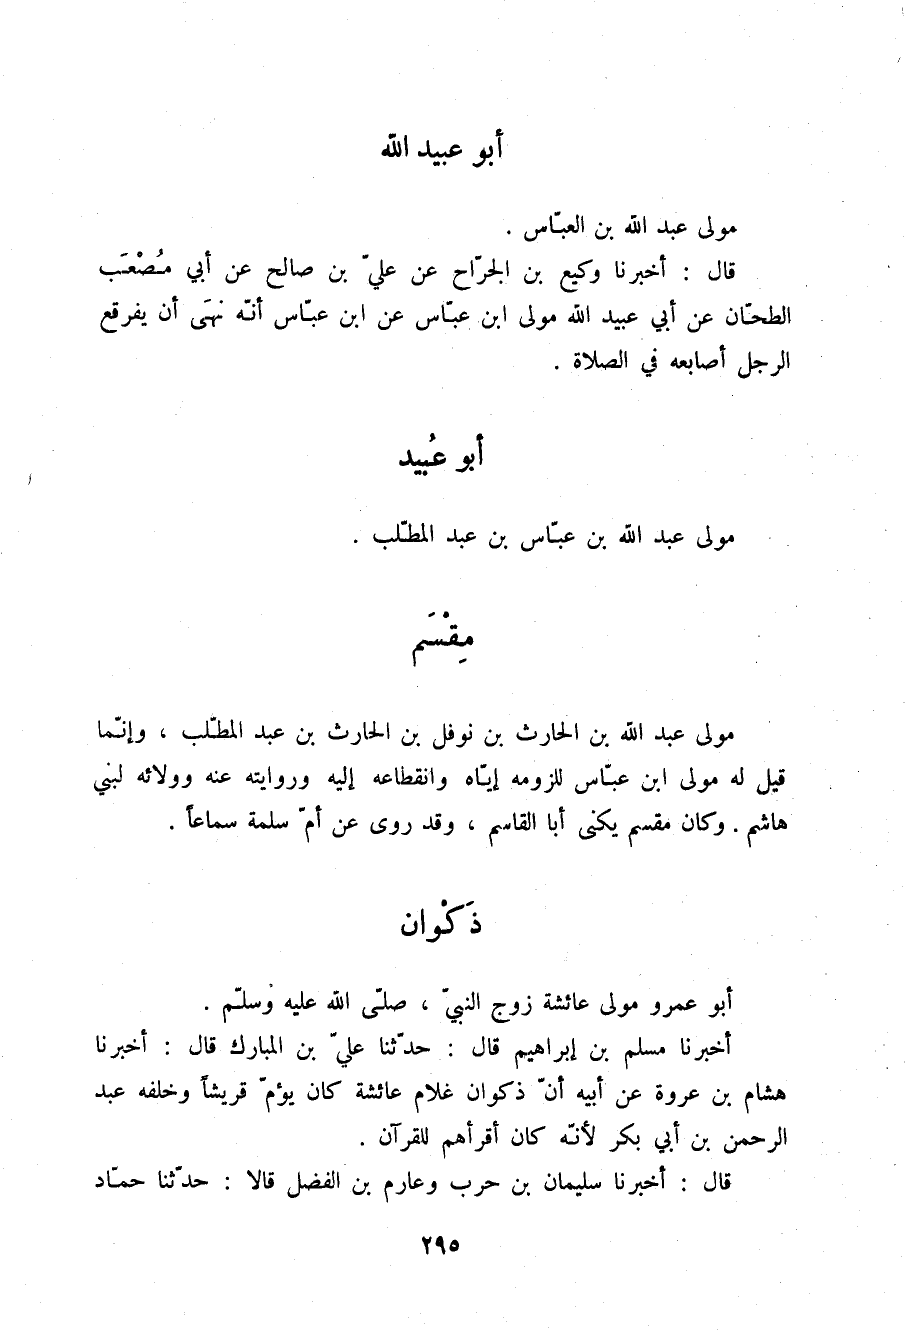 أبو عبيد الله
مولى عبد الله بن العبّاس .
قال : أخبرنا وكيع بن الجرّاح عن عليّ بن صالح عن أبي مُصْعَب
الطحّان عن أبي عبيد الله مولى ابن عبّاس عن ابن عبّاس أنّه نهَى أن يفرقع
الرجل أصابعه في الصلاة .
أبو عُبيد
مولى عبد الله بن عبّاس بن عبد المطّلب .
مِقْسَم
مولى عبد الله بن الحارث بن نوفل بن الحارث بن عبد المطّلب ، وإنّما
قيل له مولى ابن عبّاس للزومه إيّاه وانقطاعه إليه وروايته عنه وولائه لبني
هاشم . وكان مقسم يكنى أبا القاسم ، وقد روى عن أمّ سلمة سماعاً .
ذَكْوان
أبو عمرو مولى عائشة زوج النبيّ ، صلّى الله عليه وسلّم .
أخبرنا مسلم بن إبراهيم قال : حدّثنا عليّ بن المبارك قال : أخبرنا
هشام بن عروة عن أبيه أنّ ذكوان غلام عائشة كان يؤمّ قريشاً وخلفه عبد
الرحمن بن أبي بكر لأنّه كان أقرأهم للقرآن .
قال : أخبرنا سليمان بن حرب وعارم بن الفضل قالا : حدّثنا حمّاد
٢٩٥